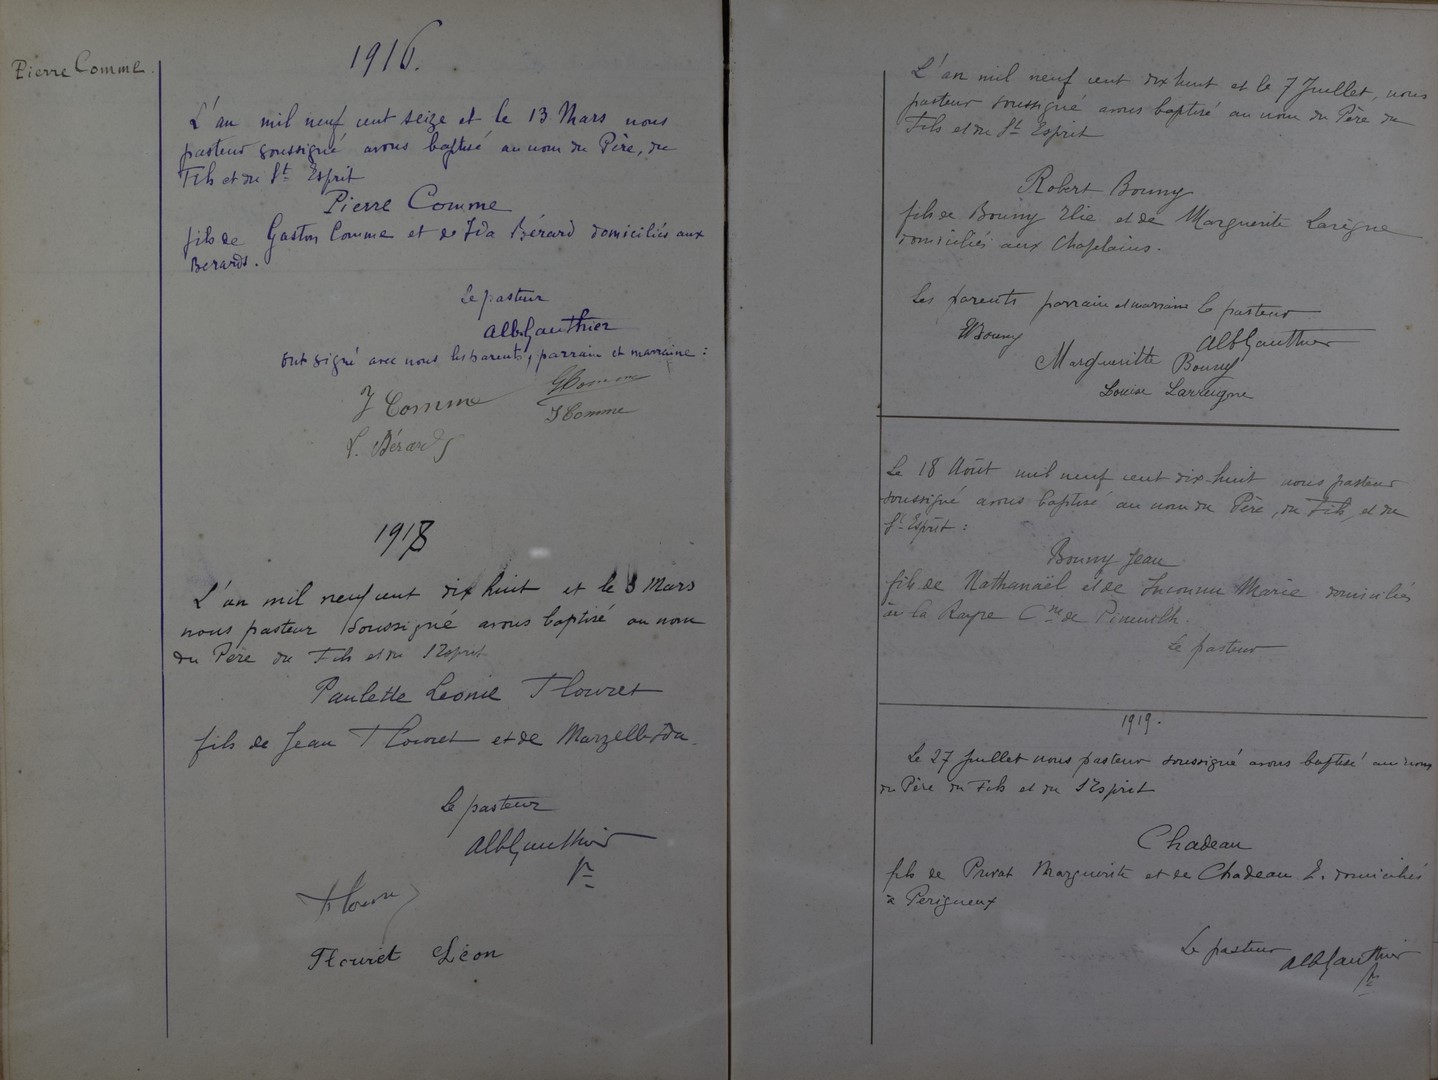 Pierre Comme.
1916.
L'an mil neuf cent seize et le 13 Mars nous
pasteur soussigné avons baptisé au nom du Père, du
Fils et du St Esprit
Pierre Comme
fils de Gaston Comme et de Ida Bérard domiciliés aux
Berards.
Le pasteur
Alb Gauthier
ont signé avec nous les parents, parrain et marraine :
J Comme
G Comme
I Comme
L. Bérard
1918
L'an mil neuf cent dix huit et le 3 Mars
nous pasteur soussigné avons baptisé au nom
du Père du Fils et du St Esprit
Paulette Leonie Flouret
fils de Jean Flouret et de Marzelle Ida.
Le pasteur
Alb Gauthier
Pr
Flouret Léon
L'an mil neuf cent dix huit et le 7 Juillet, nous
pasteur soussigné avons baptisé au nom du Père du
Fils et du St Esprit
Robert Bonny
fils de Bonny Elie et de Marguerite Lavigne
domiciliés aux Chaplains.
Les parents parrain et marraine le pasteur
E Bonny
Alb Gauthier
Margueritte Bonny
Louise Larreigne
Le 18 Août mil neuf cent dix-huit nous pasteur
soussigné avons baptisé au nom du Père, du Fils, et du
St Esprit :
Bonny Jean
fils de Nathanaël et de Inconnu Marie domiciliés
à la Rayre Cne de Pineuilh.
Le pasteur
1919.
Le 27 Juillet nous pasteur soussigné avons baptisé au nom
du Père du Fils et du St Esprit
Chadeau
fils de Privat Marguerite et de Chadeau E. domiciliés
à Perigueux
Le pasteur Alb Gauthier
Pr